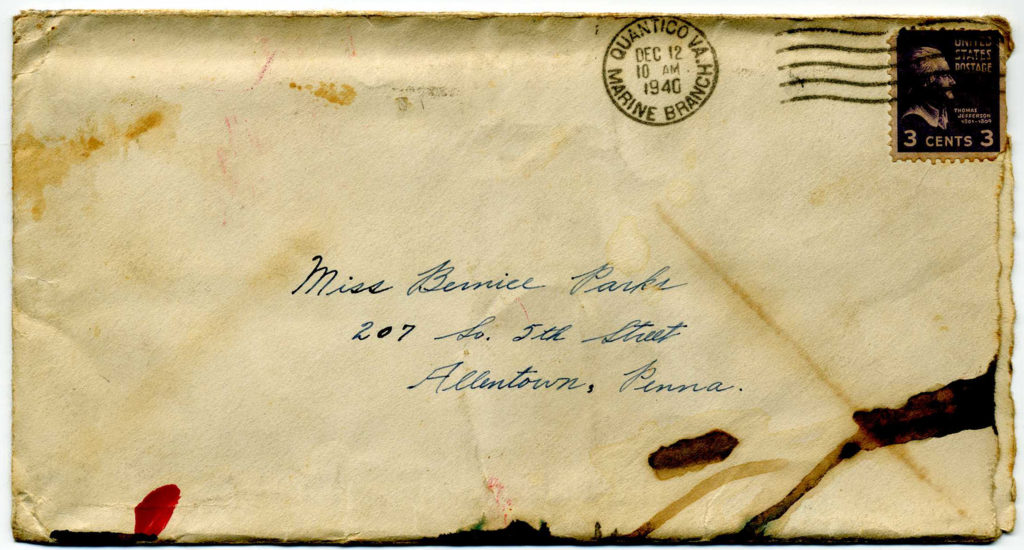 QUANTICO VA.
DEC 12
10 AM
1940
MARINE BRANCH
UNITED
STATES
POSTAGE
THOMAS
JEFFERSON
1801-1809
3 CENTS 3
Miss Bernice Parks
207 So. 5th Street
Allentown, Penna.